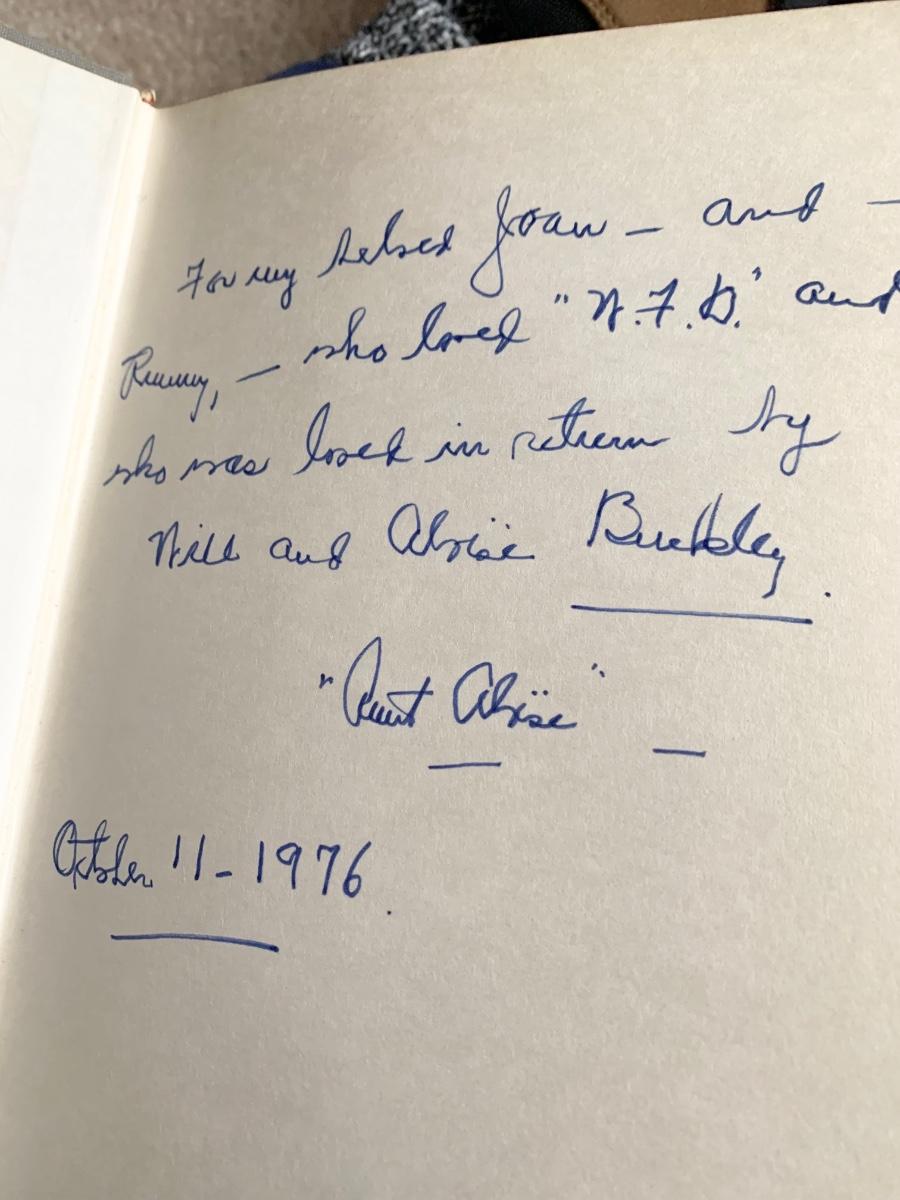 For my beloved Joan – and –
who loved "W.F.B." and
who was loved in return by
Will and Aloïse Buckley.
"Aunt Aloïse" –
October 11 – 1976.